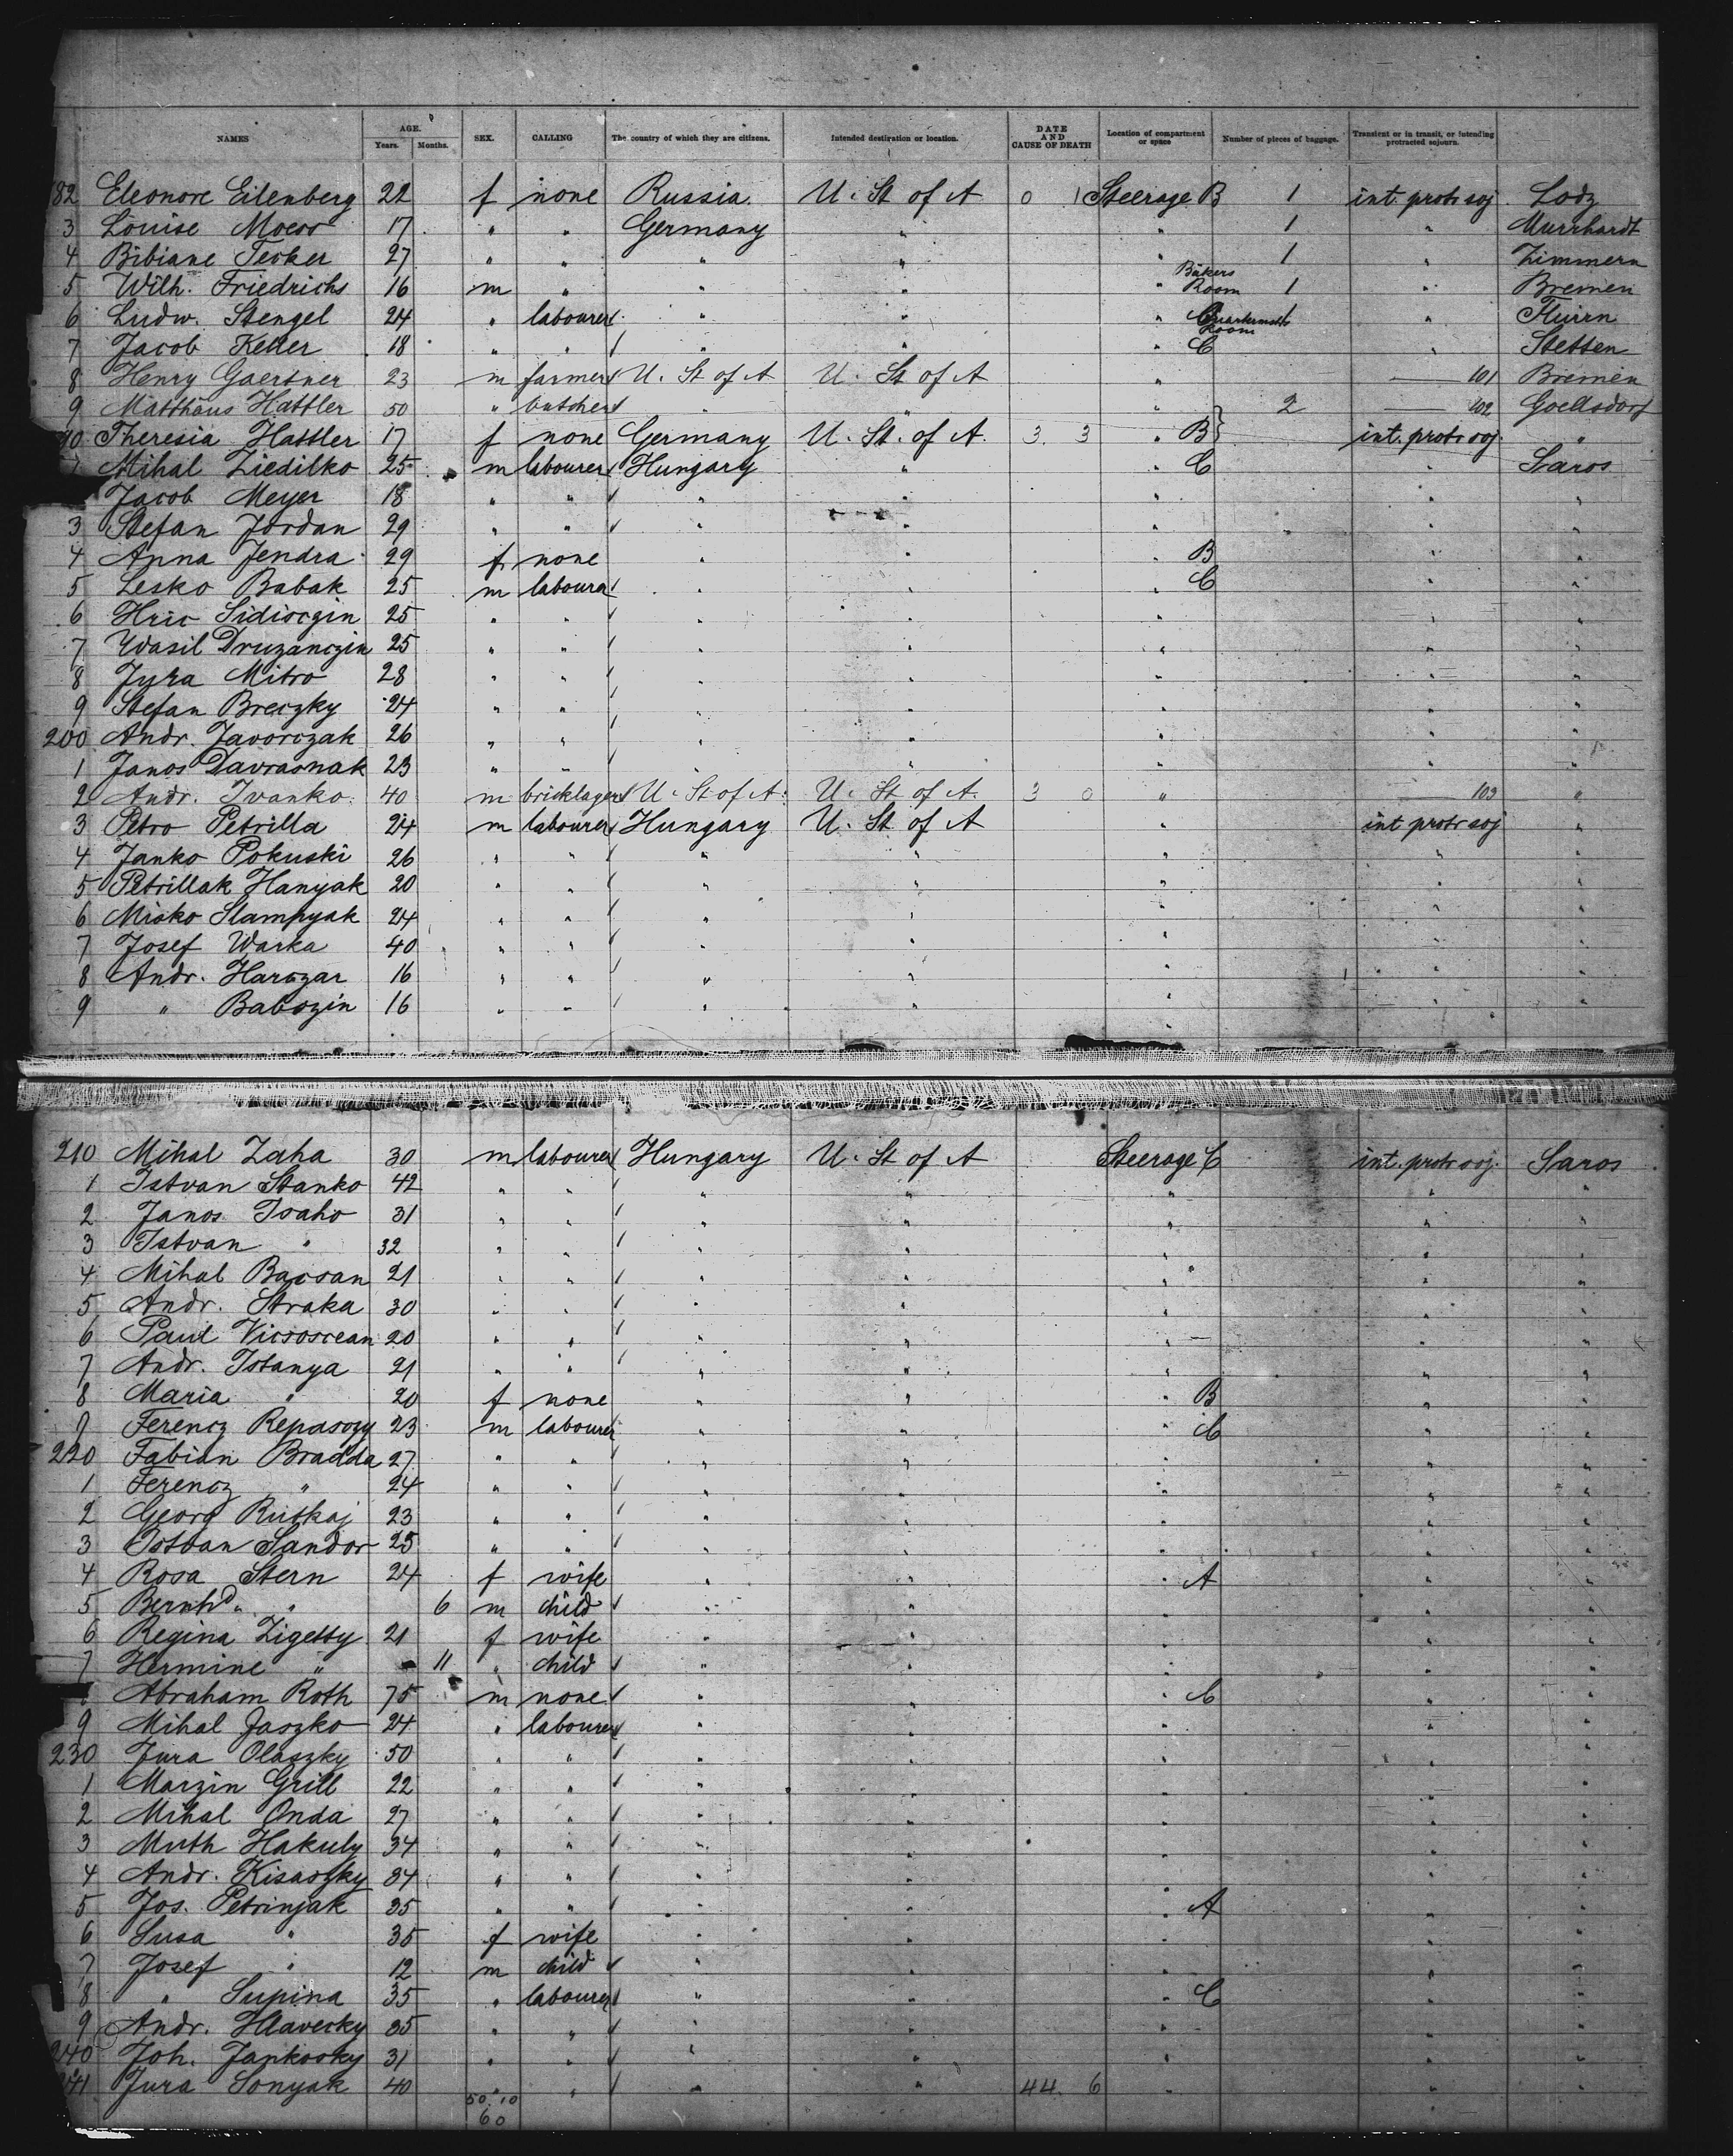 NAMES AGE. Years. Months. SEX. CALLING The country of which they are citizens. Intended destination or location. DATE AND CAUSE OF DEATH Location of compartment or space Number of pieces of baggage. Transient or in transit, or intending protracted sojourn.
182 Eleonore Eilenberg 22 f none Russia U. St of A 0 1 Steerage B 1 int. protr soj Lodz
3 Louise 17 " " Germany " " 1 " Murrhardt
4 Bibiane Tecker 27 " " " " " 1 " Zimmern
5 Wilh. Friedrichs 16 m " " " " Bäkers Room 1 " Bremen
6 Ludw. Stengel 24 " labourer " " " Room 1 "
7 Jacob Keller 18 " " " " " C " Stetten
8 Henry Gaertner 23 m farmer U. St of A U. St of A " 101 Bremen
9 Matthäus Hattler 50 " butcher " " " 2 102 Goellsdorf
90 Theresia Hattler 17 f none Germany U. St. of A. 3. 3 " B int. protr soj. "
1 Mihal Ziedilko 25 m labourer Hungary " " C " Saros
Jacob Meyer 18 " " " " " " "
3 Stefan Jordan 29 " " " " " " "
4 Anna Jendra 29 f none " " " B " "
5 Lesko Babak 25 m labourer " " " C " "
6 Hric Sidiorgin 25 " " " " " " "
7 Wasil Druzanczin 25 " " " " " " "
8 Jyra Mitro 28 " " " " " " "
9 Stefan Breczky 24 " " " " " " "
200 Andr. Javorczak 26 " " " " " " "
1 Janos Davrasnak 23 " " " " " " "
2 Andr. Ivanko 40 m bricklager U. St of A. U. St of A. 3 0 " 103 "
3 Petro Petrilla 24 m labourer Hungary U. St of A " int protr soj "
4 Janko Pokuski 26 " " " " " " "
5 Petrillak Hanyak 20 " " " " " " "
6 Misko Slampyak 24 " " " " " " "
7 Josef Warka 40 " " " " " " "
8 Andr. Harczar 16 " " " " " " "
9 " Babozin 16 " " " " " " "
210 Mihal Zaha 30 m labourer Hungary U. St of A Steerage C int. protr soj. Saros
1 Istvan Stanko 42 " " " " " " "
2 Janos Tsaho 31 " " " " " " "
3 Istvan " 32 " " " " " " "
4 Mihal Bacsan 21 " " " " " " "
5 Andr. Straka 30 " " " " " " "
6 Paul 20 " " " " " " "
7 Andr. Istanya 21 " " " " " " "
8 Maria " 20 f none " " " B " "
9 Ferencz Repasozy 23 m labourer " " " C " "
220 Fabian Bradda 27 " " " " " " "
1 Ferencz " 24 " " " " " " "
2 Georg Rutkaj 23 " " " " " " "
3 Istvan Sandor 25 " " " " " " "
4 Rosa Stern 24 f wife " " " A " "
5 Bernhd " 6 m child " " " " "
6 Regina Zigetty 21 f wife " " " " "
7 Hermine " 11 " child " " " " "
Abraham Roth 75 m none " " " C " "
9 Mihal Jaszko 24 " labourer " " " " "
230 Jura Olaszky 50 " " " " " " "
1 Marzin Grill 22 " " " " " " "
2 Mihal Onda 27 " " " " " " "
3 Muth Hakuly 34 " " " " " " "
4 Andr. Kisaszky 34 " " " " " " "
5 Jos. Petrinjak 35 " " " " " A " "
6 Susa " 35 f wife " " " " "
7 Josef " 12 m child " " " " "
8 " Supina 35 " labourer " " " C " "
9 Andr. Hlavecky 35 " " " " " " "
240 Joh. Jankosky 31 " " " " " " "
241 Jura Sonyak 40 " " " " 44. 6 " " "
50.10
60